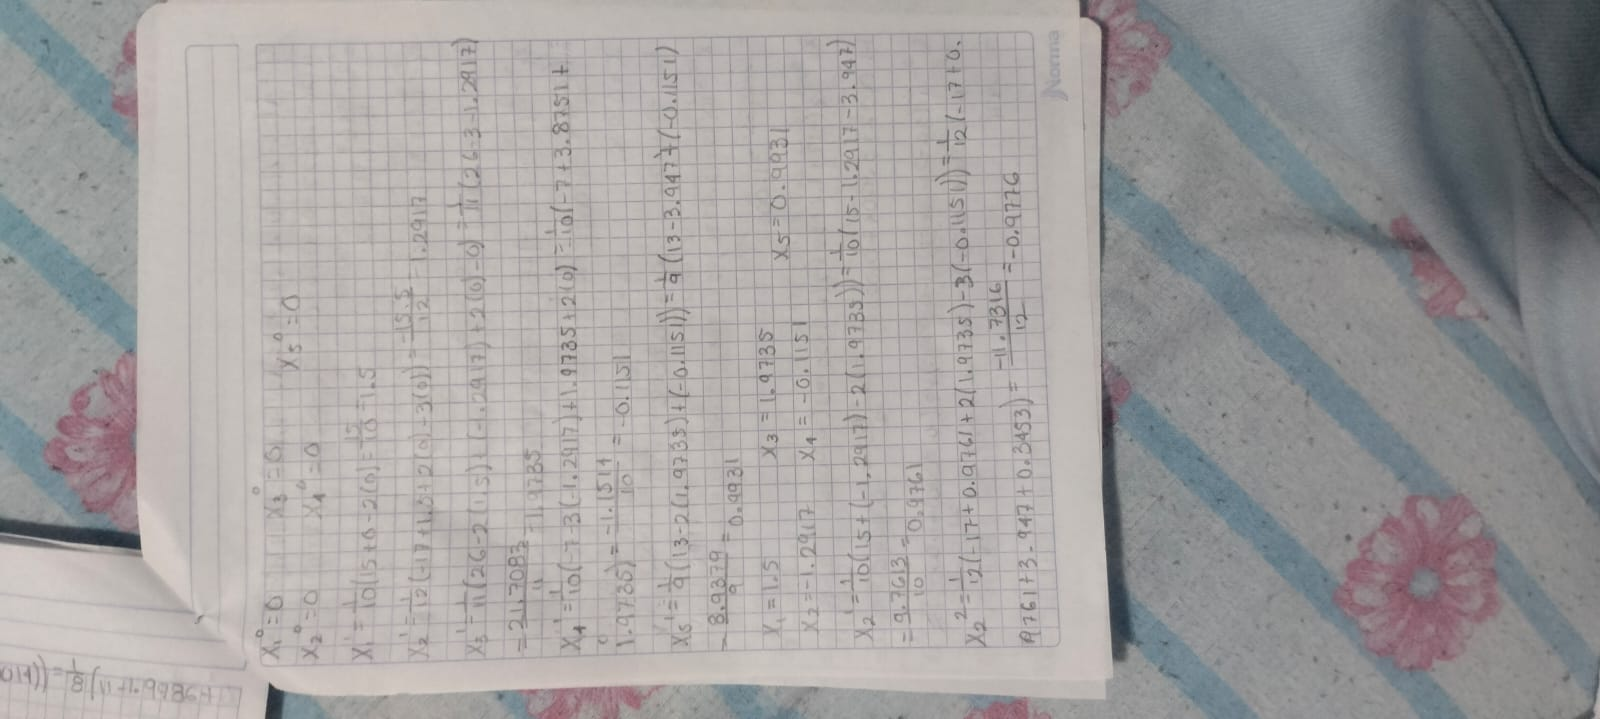 x₁⁰=0 x₃⁰=0
x₂⁰=0 x₄⁰=0 x₅⁰=0
x₁¹=1/10(15+0-2(0)=15/10=1.5
x₂¹=1/12(-17+1.5+2(0)-3(0))=-15.5/12=-1.2917
x₃¹=1/11(26-2(1.5)+(-1.2917)+2(0)-0)=1/11(26-3-1.2917)
=21.7083/11=1.9735
x₄¹=1/10(-7-3(-1.2917)+1.9735+2(0)=1/10(-7+3.8751+
1.9735)=-1.1514/10=-0.1151
x₅¹=1/9(13-2(1.9735)+(-0.1151))=1/9(13-3.947+(-0.1151)
8.9379/9=0.9931
x₁=1.5 x₃=1.9735
x₂=-1.2917 x₄=-0.1151 x₅=0.9931
x₂¹=1/10(15+(-1,2917)-2(1.9735))=1/10(15-1.2917-3.947)
=9.7613/10=0.9761
x₂²=1/12(-17+0.9761+2(1.9735)-3(-0.1151))=1/12(-17+0.
9761+3.947+0.3453)=-11.7316/12=-0.9776
Norma